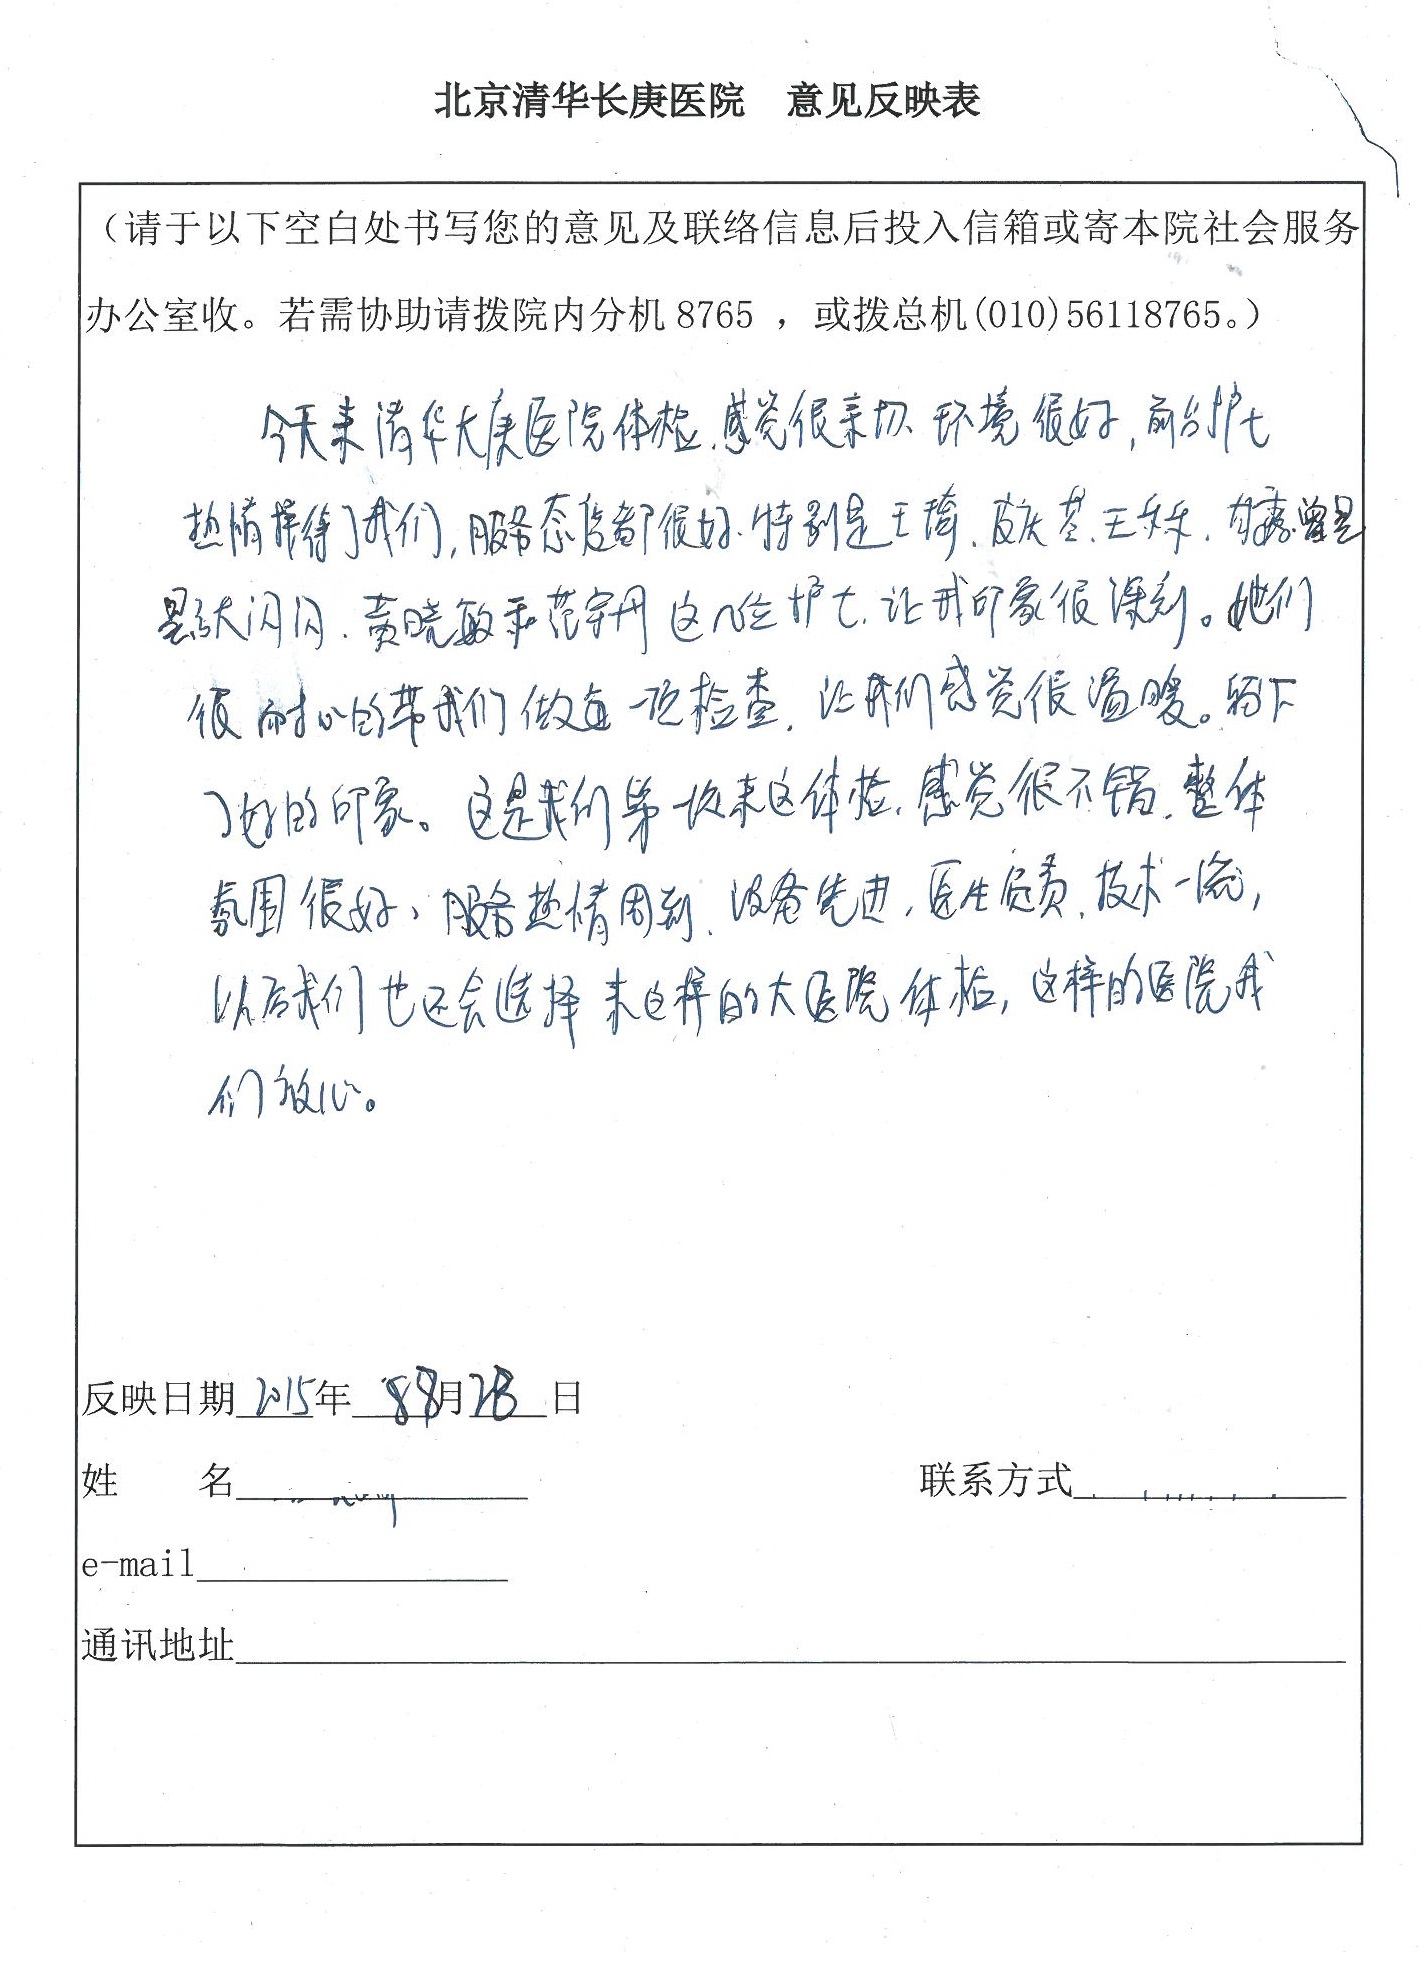 北京清华长庚医院　意见反映表
（请于以下空白处书写您的意见及联络信息后投入信箱或寄本院社会服务
办公室收。若需协助请拨院内分机 8765 ，或拨总机(010)56118765。）
今天来清华大庚医院体检,感觉很亲切、环境很好,前台护士
热情接待了我们,服务态度都很好.特别是王琦、王禾禾、
闪闪、黄晓敏和范宇丹这几位护士,让我印象很深刻。她们
很耐心的带我们做每一项检查,让我们感觉很温暖。留下
了好的印象。这是我们第一次来这体检,感觉很不错,整体
氛围很好、服务热情周到、设备先进,医生负责,技术一流,
以后我们也还会选择来这样的大医院体检,这样的医院我
们放心。
反映日期 2015 年 8 月 28 日
姓　　名　　　　联系方式
e-mail
通讯地址